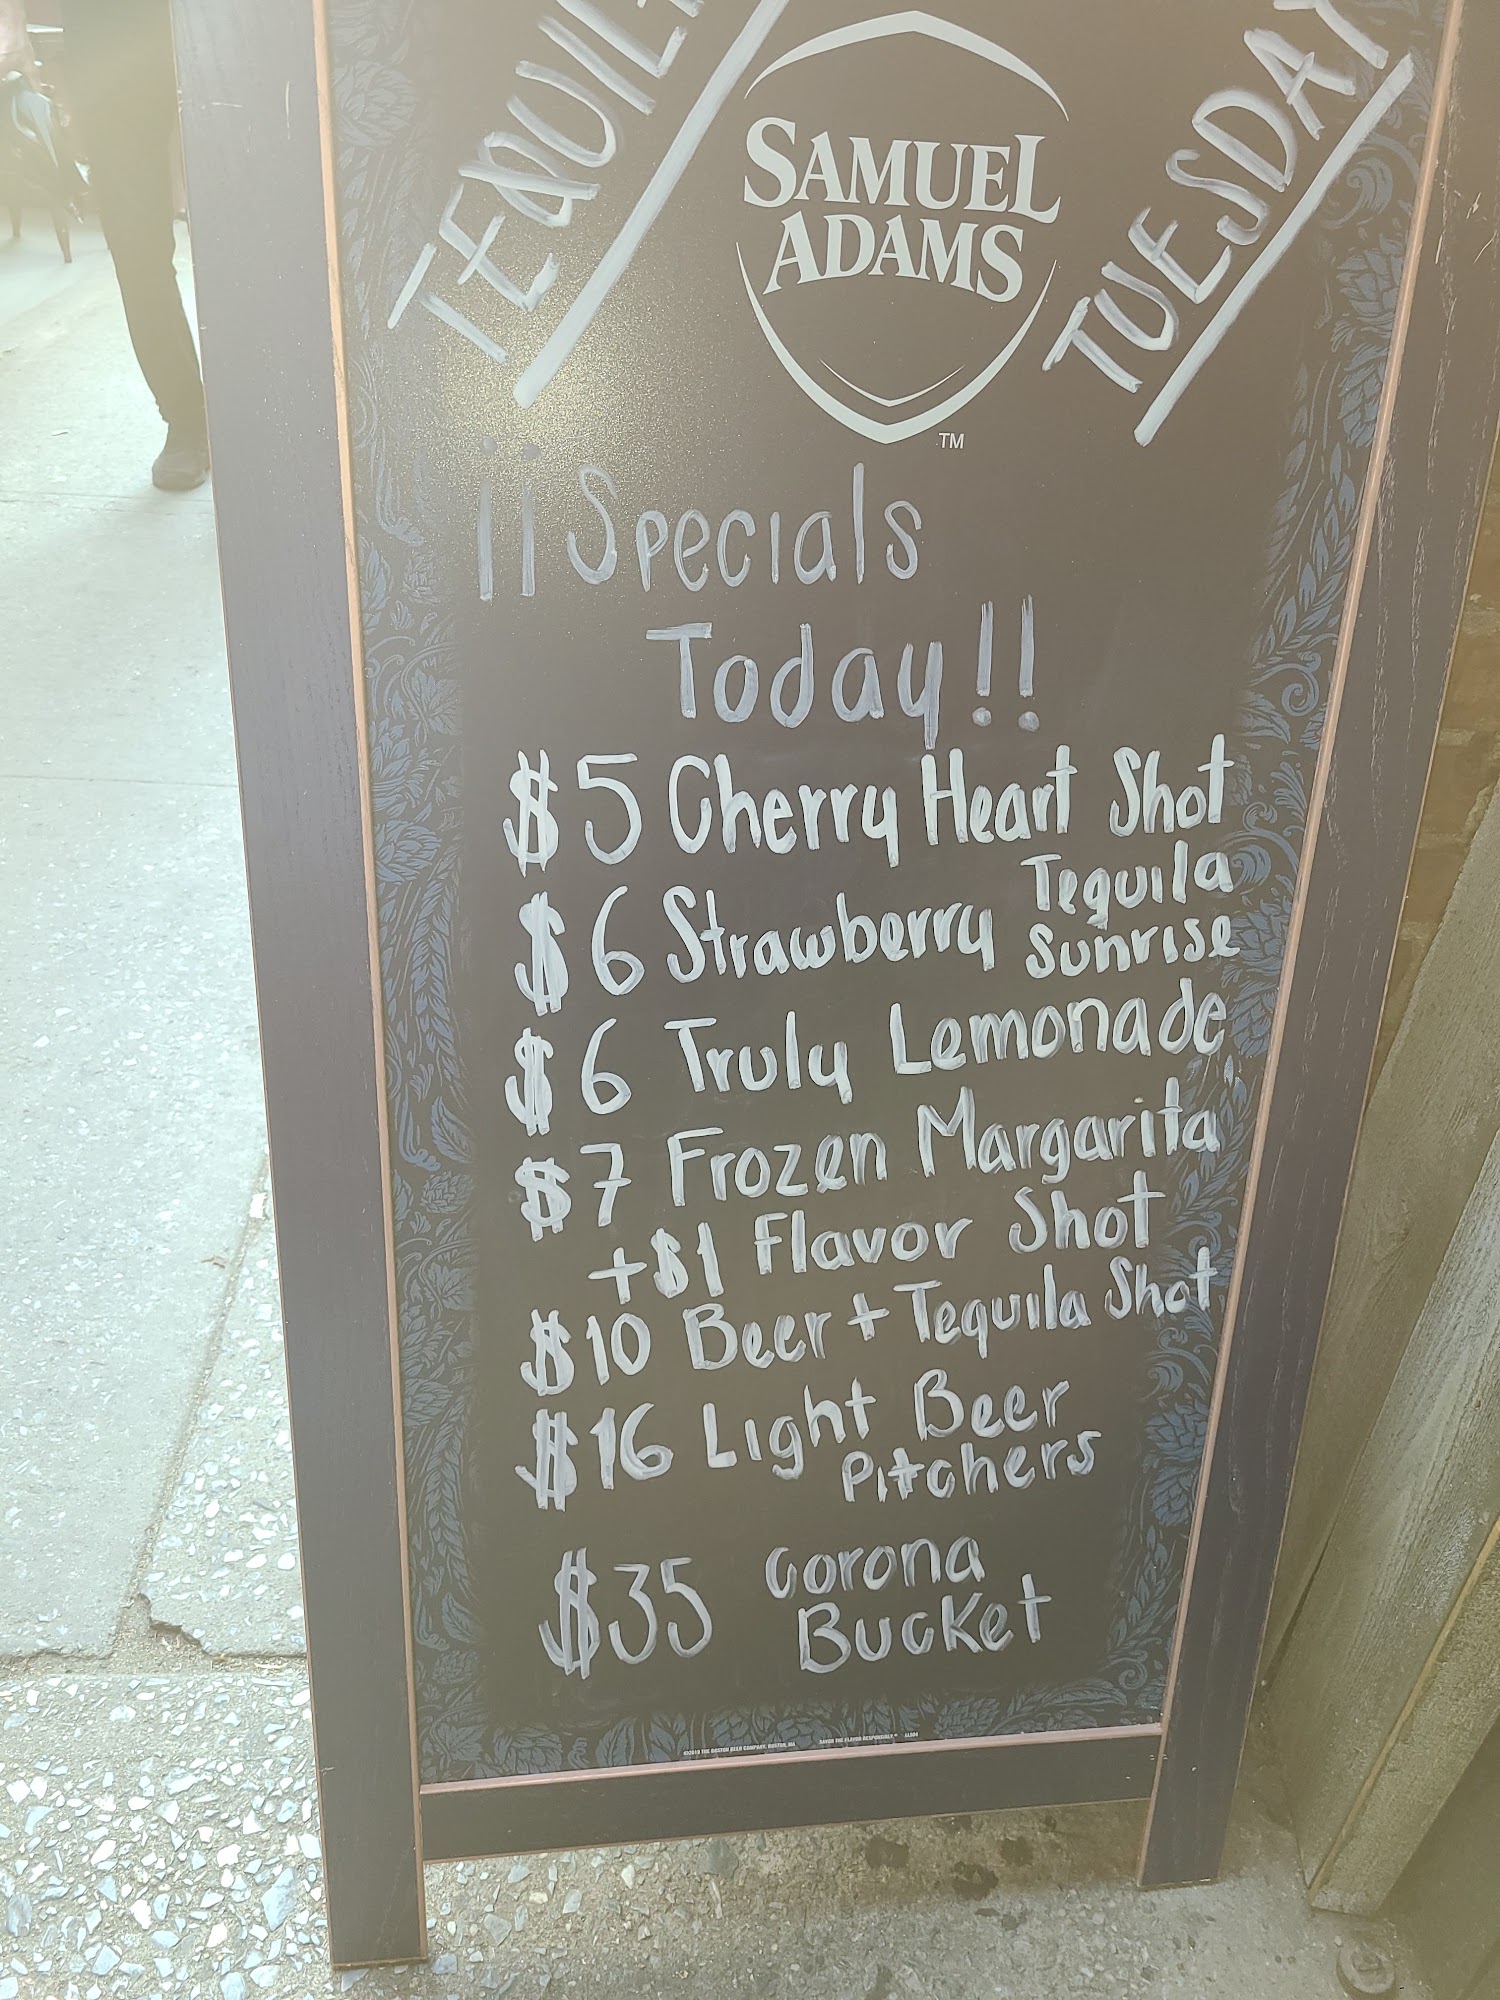 TEQUIL
TUESDAY
SAMUEL
ADAMS
TM
¡¡Specials
Today!!
$5 Cherry Heart Shot
$6 Strawberry Tequila
Sunrise
$6 Truly Lemonade
$7 Frozen Margarita
+$1 Flavor Shot
$10 Beer + Tequila Shot
$16 Light Beer
Pitchers
$35 Corona
Bucket
©2019 THE BOSTON BEER COMPANY, BOSTON, MA SAVOR THE FLAVOR RESPONSIBLY.®